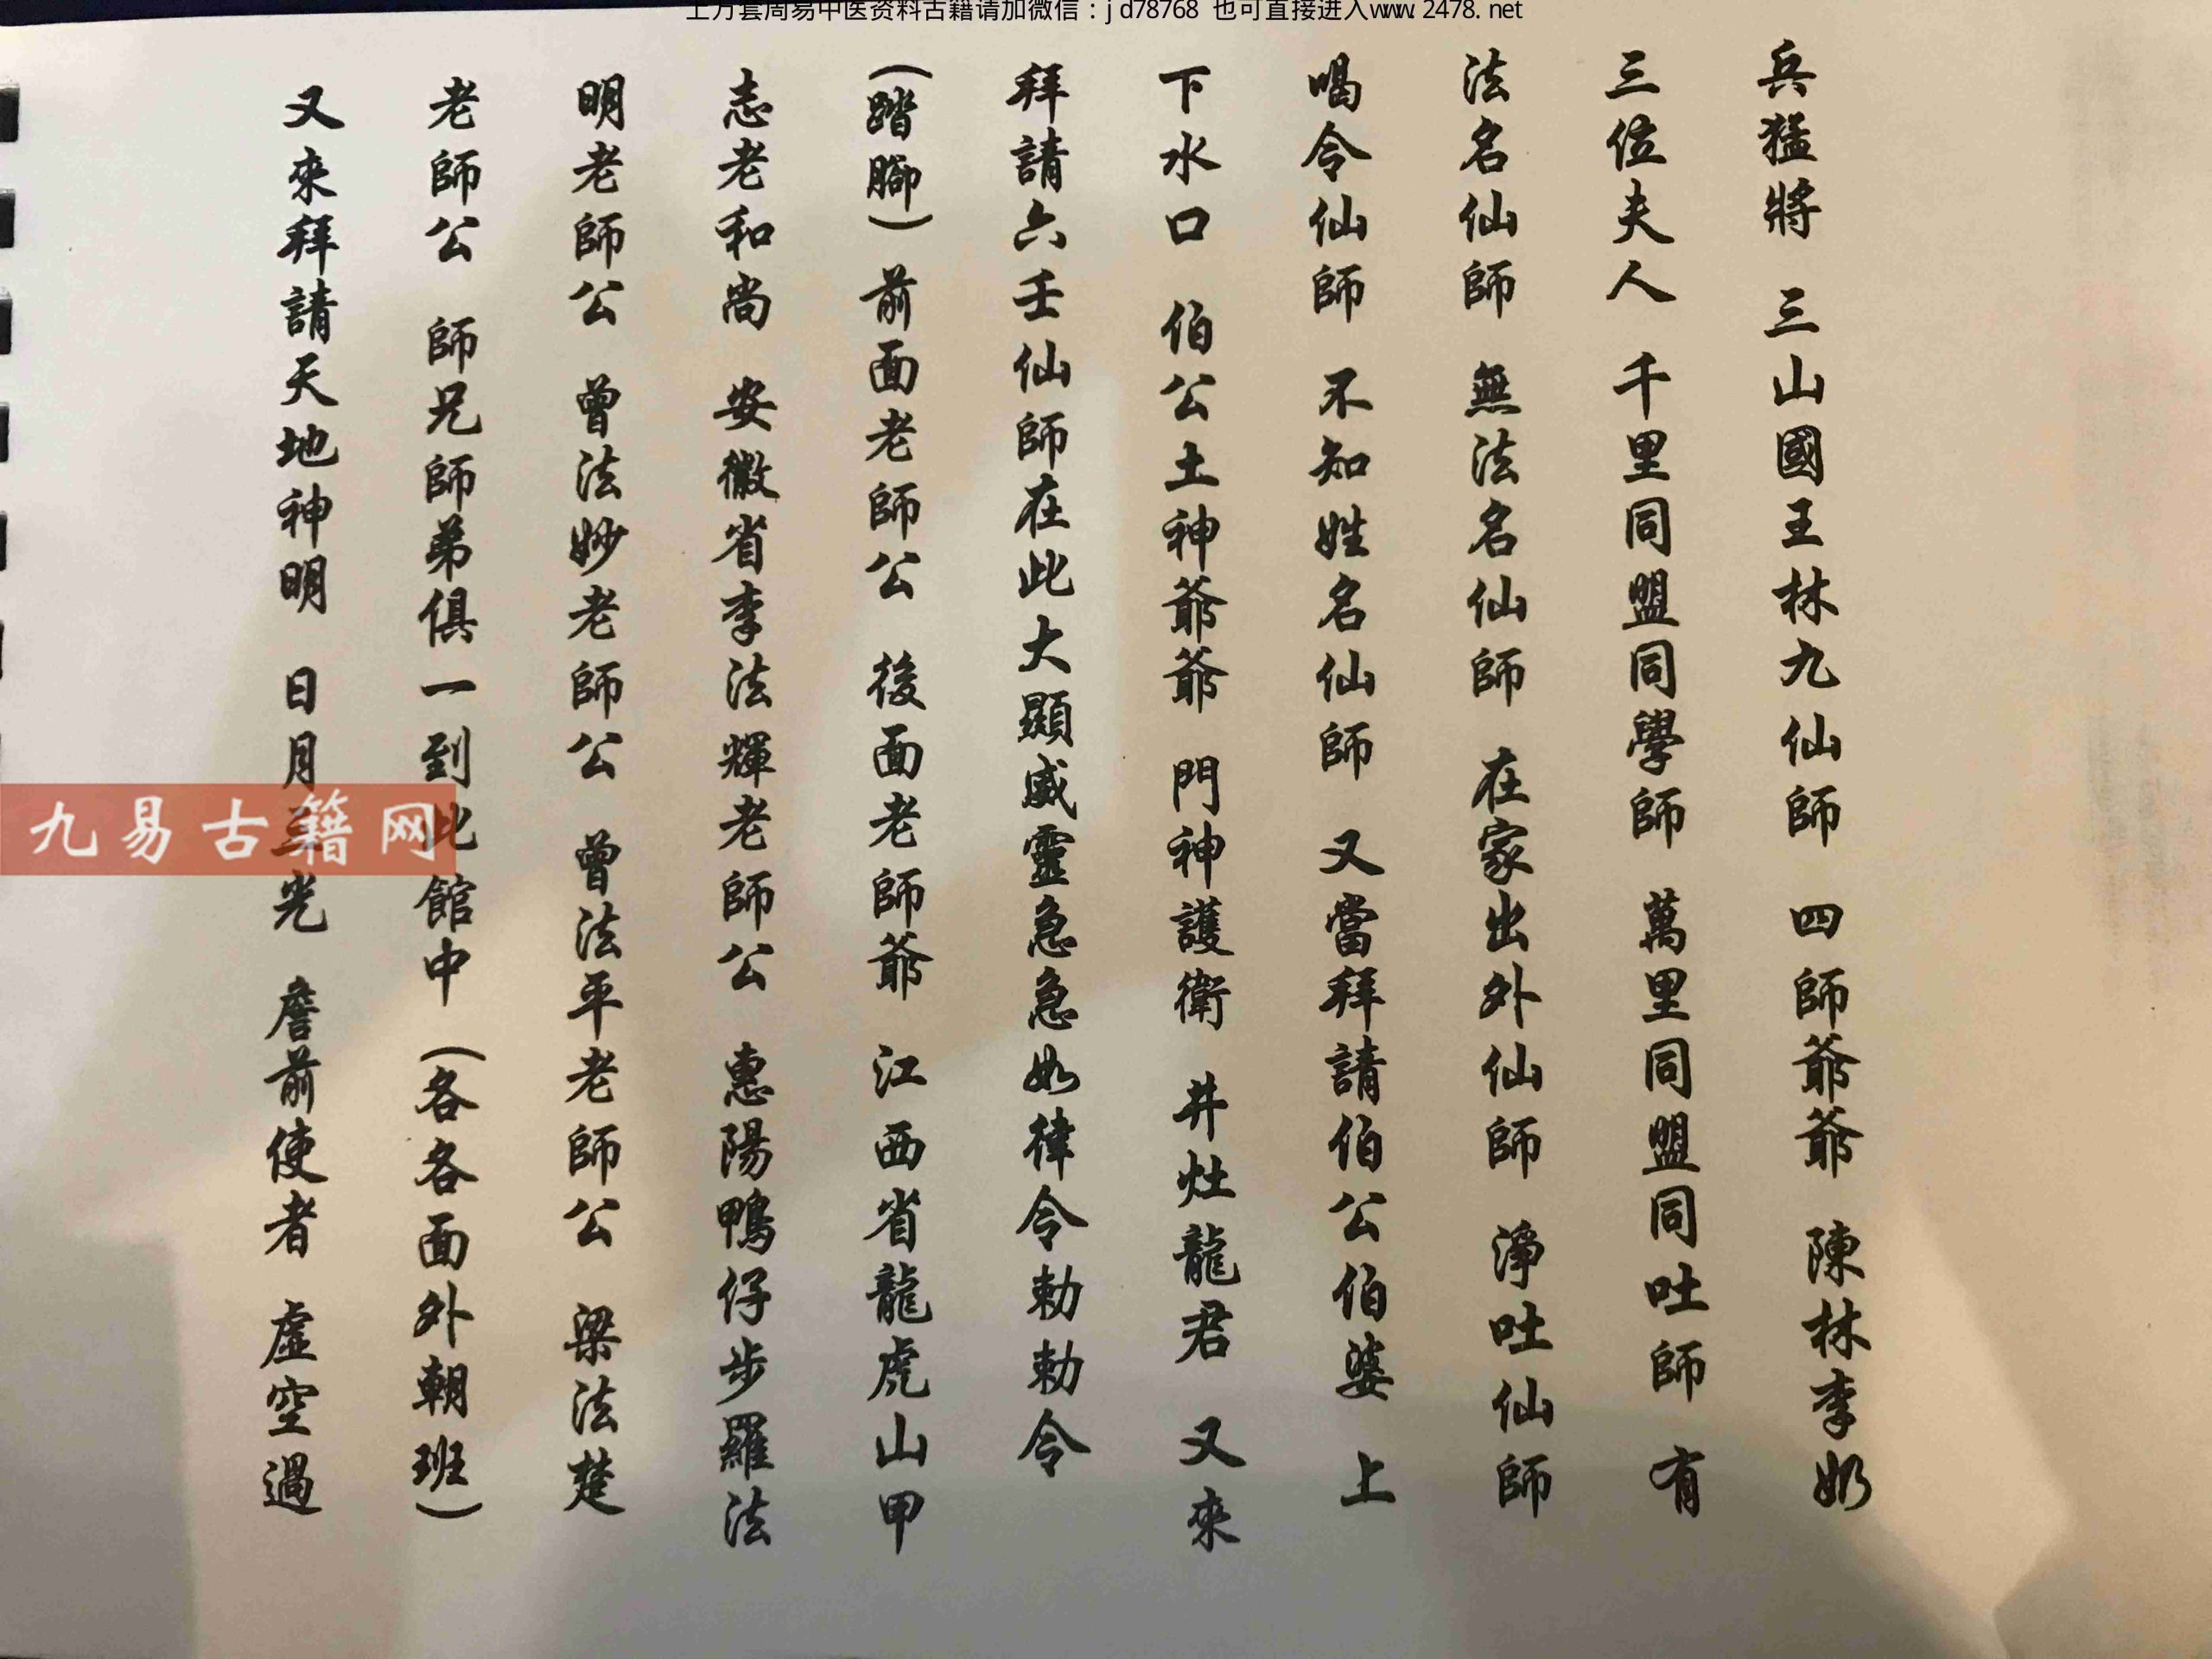 上万套周易中医资料古籍请加微信：jd78768 也可直接进入www.2478.net
兵猛將 三山國王林九仙師 四師爺爺 陳林李奶
三位夫人 千里同盟同學師 萬里同盟同吐師 有
法名仙師 無法名仙師 在家出外仙師 淨吐仙師
喝令仙師 不知姓名仙師 又當拜請伯公伯婆 上
下水口 伯公土神爺爺 門神護衛 井灶龍君 又來
拜請六壬仙師在此大顯威靈急急如律令勅勅令
（踏腳）前面老師公 後面老師爺 江西省龍虎山甲
志老和尚 安徽省李法輝老師公 惠陽鴨仔步羅法
明老師公 曾法妙老師公 曾法平老師公 梁法楚
老師公 師兄師弟俱一到此館中（各各面外朝班）
又來拜請天地神明 日月三光 詹前使者 虛空過
九易古籍网